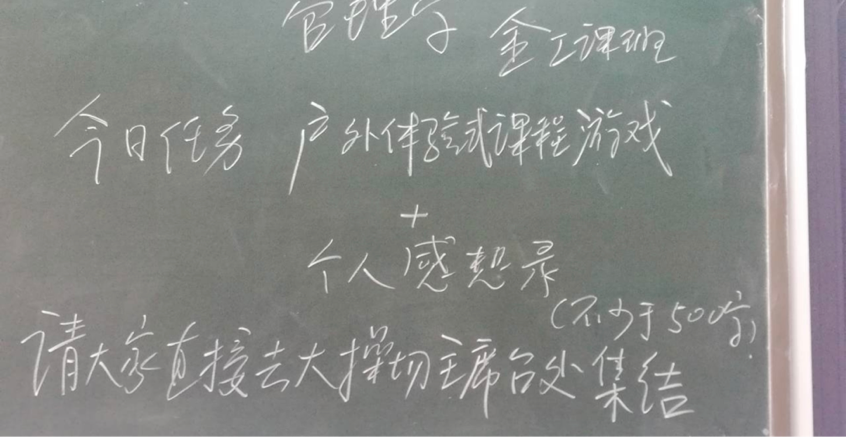 管理学 金工课班
今日任务 户外体验式课程游戏
+
个人感想录
(不少于500字)
请大家直接去大操场主席台处集结